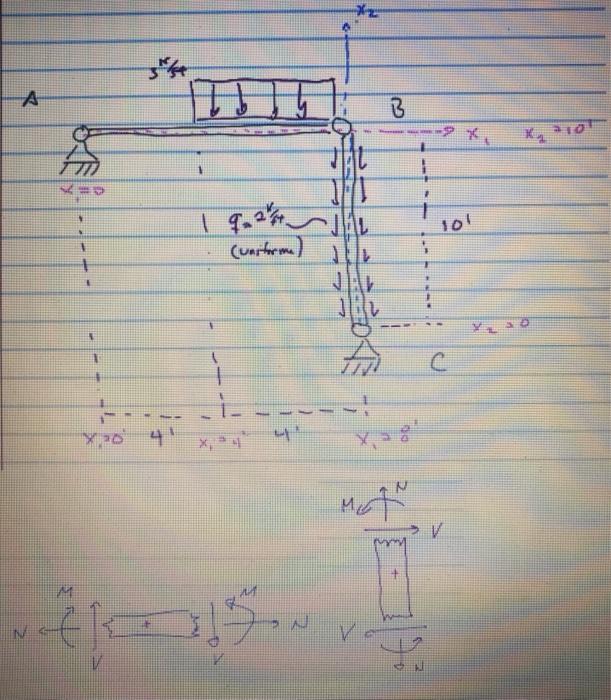 x₂
3 k/ft
A
B
x₁
x₂=10'
x₁=0
q=2 k/ft
(uniform)
10'
x₂=0
C
x₁=0' 4' x₁=4' 4' x₁=8'
N
M
V
M
M
N
+
N
V
V
+
V
N